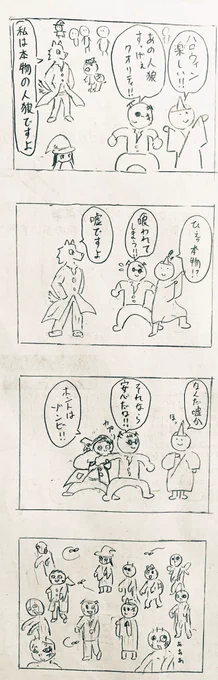 ハロウィン
楽しい!!
あの人狼
すげぇ
クオリティ!!
私は本物の人狼ですよ
ひえっ本物!?
喰われて
しまう!!
嘘ですよ
なんだ嘘か
ほっ
それなら
安心だな!!
ホントは
ゾンビ!!